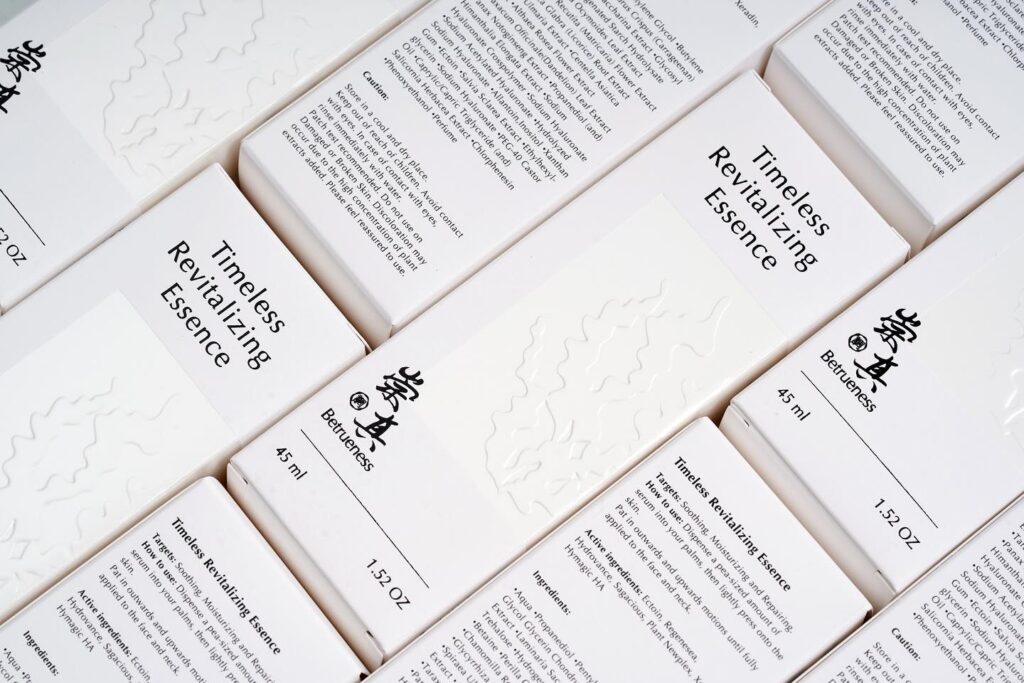 崇真
.52 OZ
Glycol •Butylene
Crispus (Carrageenan)
Starch Hydrolysate
Leaf Extract •Glyceryl
Recutita (Matricaria) Flower Extract
Ulmaria Extract •Centella Asiatica
Rosea Flower Extract
Officinale(Dandelion) Leaf Extract
Notoginseng Extract •Propanediol (and)
Himanthalia Elongate Extract •Sodium
Hyaluronate Crosspolymer •Hydrolyzed
•Sodium Acetylated Hyaluronate
•Sodium Hyaluronate •Allantoin•Inositol •Xanthan
Gum •Ectoin •Salvia Sclarea Extract•Ethylhexyl-
glycerin •Sodium Hyaluronate •PEG-40 Castor
Oil •Caprylic/Capric Triglyceride (and)
Salicornia Herbacea Extract •Chlorphenesin
•Phenoxyethanol •Perfume
Caution:
Store in a cool and dry place.
Keep out of reach of children. Avoid contact
with eyes. In case of contact with eyes,
rinse immediately with water.
Patch test recommended. Do not use on
Damaged or Broken Skin. Discoloration may
occur due to the high concentration of plant
extracts added. Please feel reassured to use.
Xeradin,
•Perfume
Store in a cool and dry place.
Keep out of reach of children. Avoid contact
with eyes. In case of contact with eyes,
rinse immediately with water.
Patch test recommended. Do not use on
Damaged or Broken Skin. Discoloration may
occur due to the high concentration of plant
extracts added. Please feel reassured to use.
Timeless
Revitalizing
Essence
Timeless
Revitalizing
Essence
崇真
Betrueness
45 ml
1.52 OZ
崇真
Betrueness
45 ml
1.52 OZ
Timeless Revitalizing Essence
Targets: Soothing, Moisturizing and Repairing.
How to use: Dispense a pea-sized amount of
serum into your palms, then lightly press onto the
skin.
Pat in outwards and upwards motions until fully
applied to the face and neck.
Active ingredients: Ectoin, Regensee,
Hydrovance, Sagacious, Plant Newplex,
Hymagic HA
Ingredients:
•Aqua •Propanediol
Glycol •Glycerin
Timeless Revitalizing Essence
Targets: Soothing, Moisturizing and Repai
How to use: Dispense a pea-sized amou
serum into your palms, then lightly pre
skin.
Pat in outwards and upwards mot
applied to the face and neck.
Active ingredients: Ectoin,
Hydrovance, Sagacious,
Hymagic HA
Ingredients:
•Aqua •P
Gum •Ectoin •Salvia
glycerin •Sodium
Oil •Caprylic/Capric
Salicornia Herbacea
•Phenoxyethanol
Caution:
Store in a
Keep out of
with eyes.